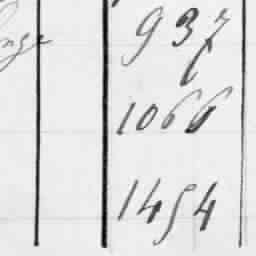 937
1066
1454